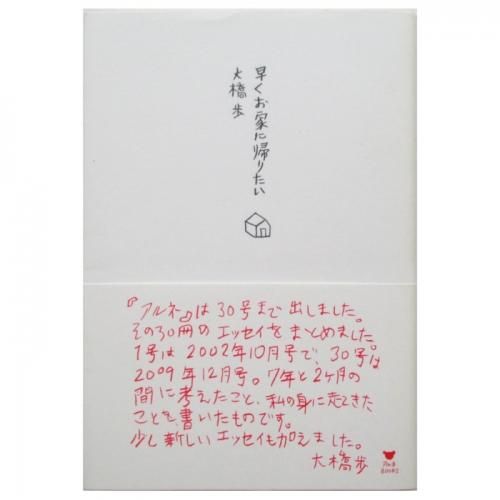 早くお家に帰りたい
大橋歩
『アルネ』は30号まで出しました。
その30冊のエッセイをまとめました。
1号は2002年10月号で、30号は
2009年12月号。7年と2ヶ月の
間に考えたこと、私の身に起きてきた
ことを、書いたものです。
少し新しいエッセイも加えました。
大橋歩
BOOKS